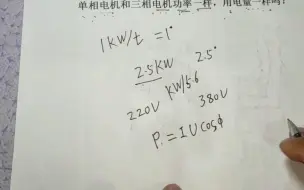 单相电机和三相电机功率一样，用电量一样吗？
1KW/t =1°
2.5KW 2.5°
KW/5.6
220V 380V
P.=IUcosϕ